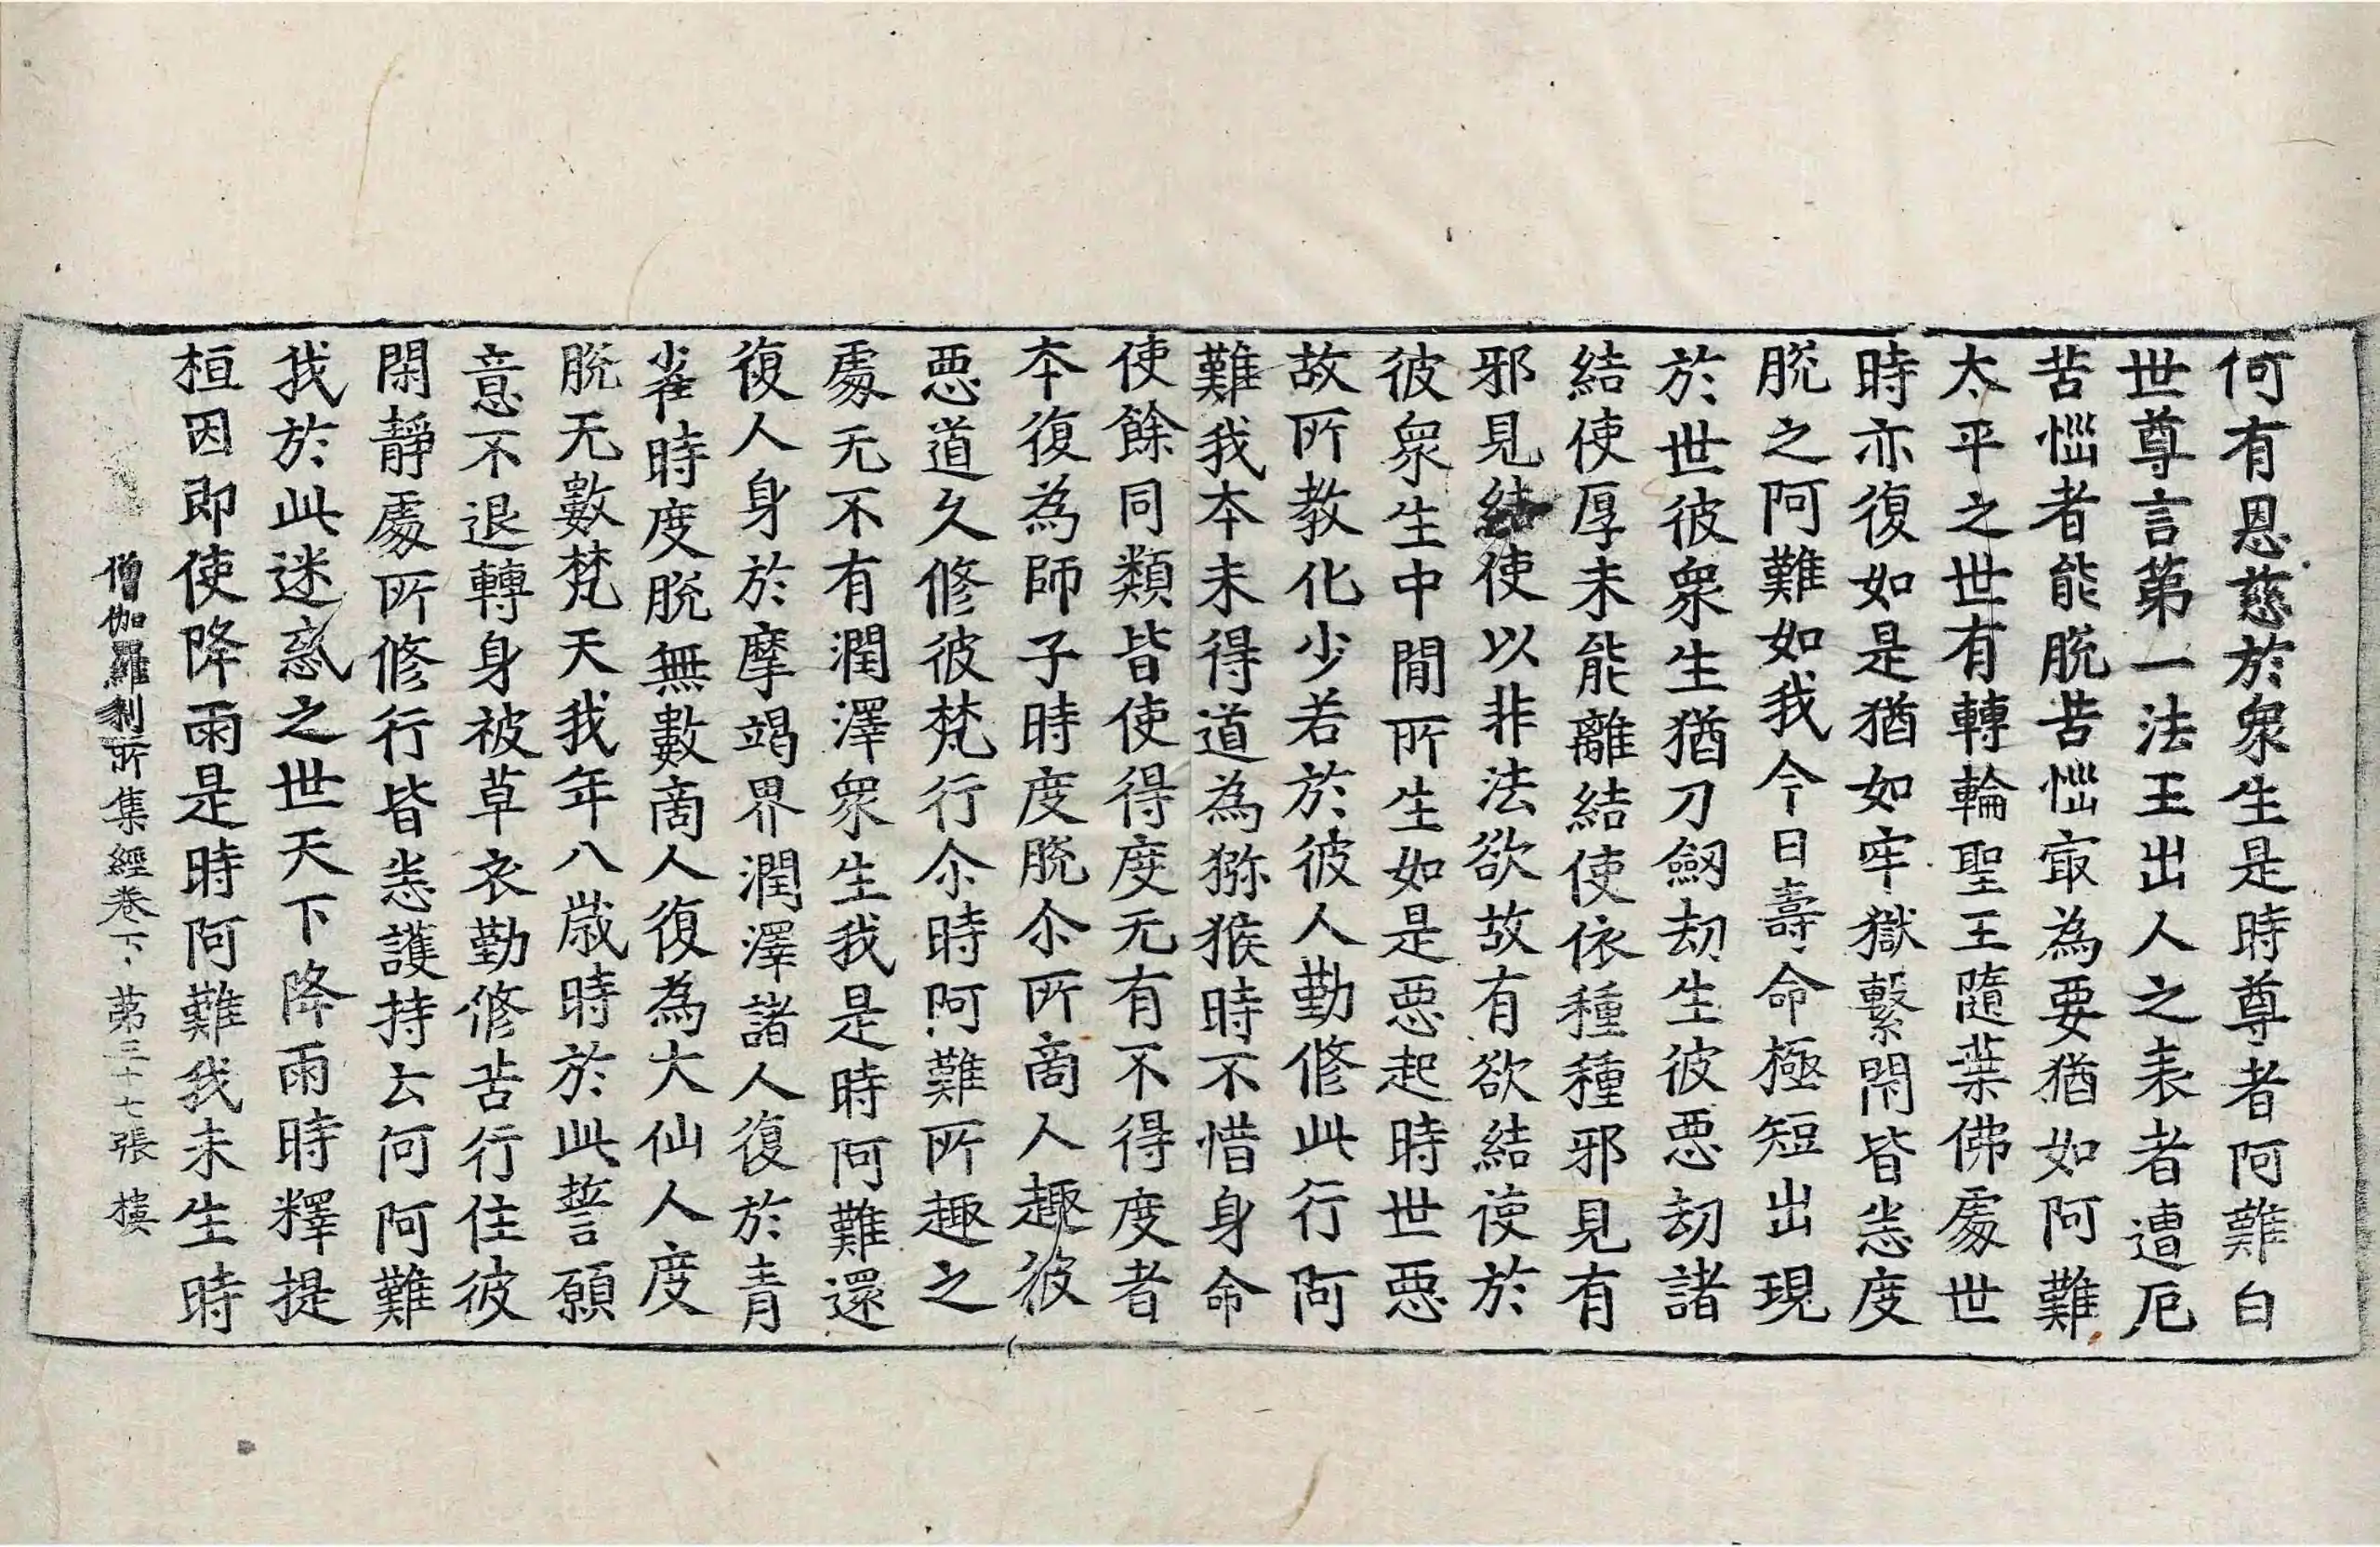 何有恩慈於衆生是時尊者阿難白
世尊言第一法王出人之表者遭厄
苦惱者能脫苦惱冣為要猶如阿難
太平之世有轉輪聖王隨葉佛處世
時亦復如是猶如牢獄繫閇皆悉度
脫之阿難如我今日壽命極短出現
於世彼衆生猶刀劒劫生彼惡劫諸
結使厚未能離結使依種種邪見有
邪見結使以非法欲故有欲結使於
彼衆生中閒所生如是惡起時世惡
故所教化少若於彼人勤修此行阿
難我本未得道為獼猴時不惜身命
使餘同類皆使得度无有不得度者
本復為師子時度脫尒所商人趣彼
惡道久修彼梵行尒時阿難所趣之
處无不有潤澤衆生我是時阿難還
復人身於摩竭界潤澤諸人復於青
雀時度脫無數商人復為大仙人度
脫无數梵天我年八歲時於此誓願
意不退轉身被草衣勤修苦行住彼
閑靜處所修行皆悉護持云何阿難
我於此迷惑之世天下降雨時釋提
桓因即使降雨是時阿難我未生時
僧伽羅刹所集經卷下 第三十七張 樓